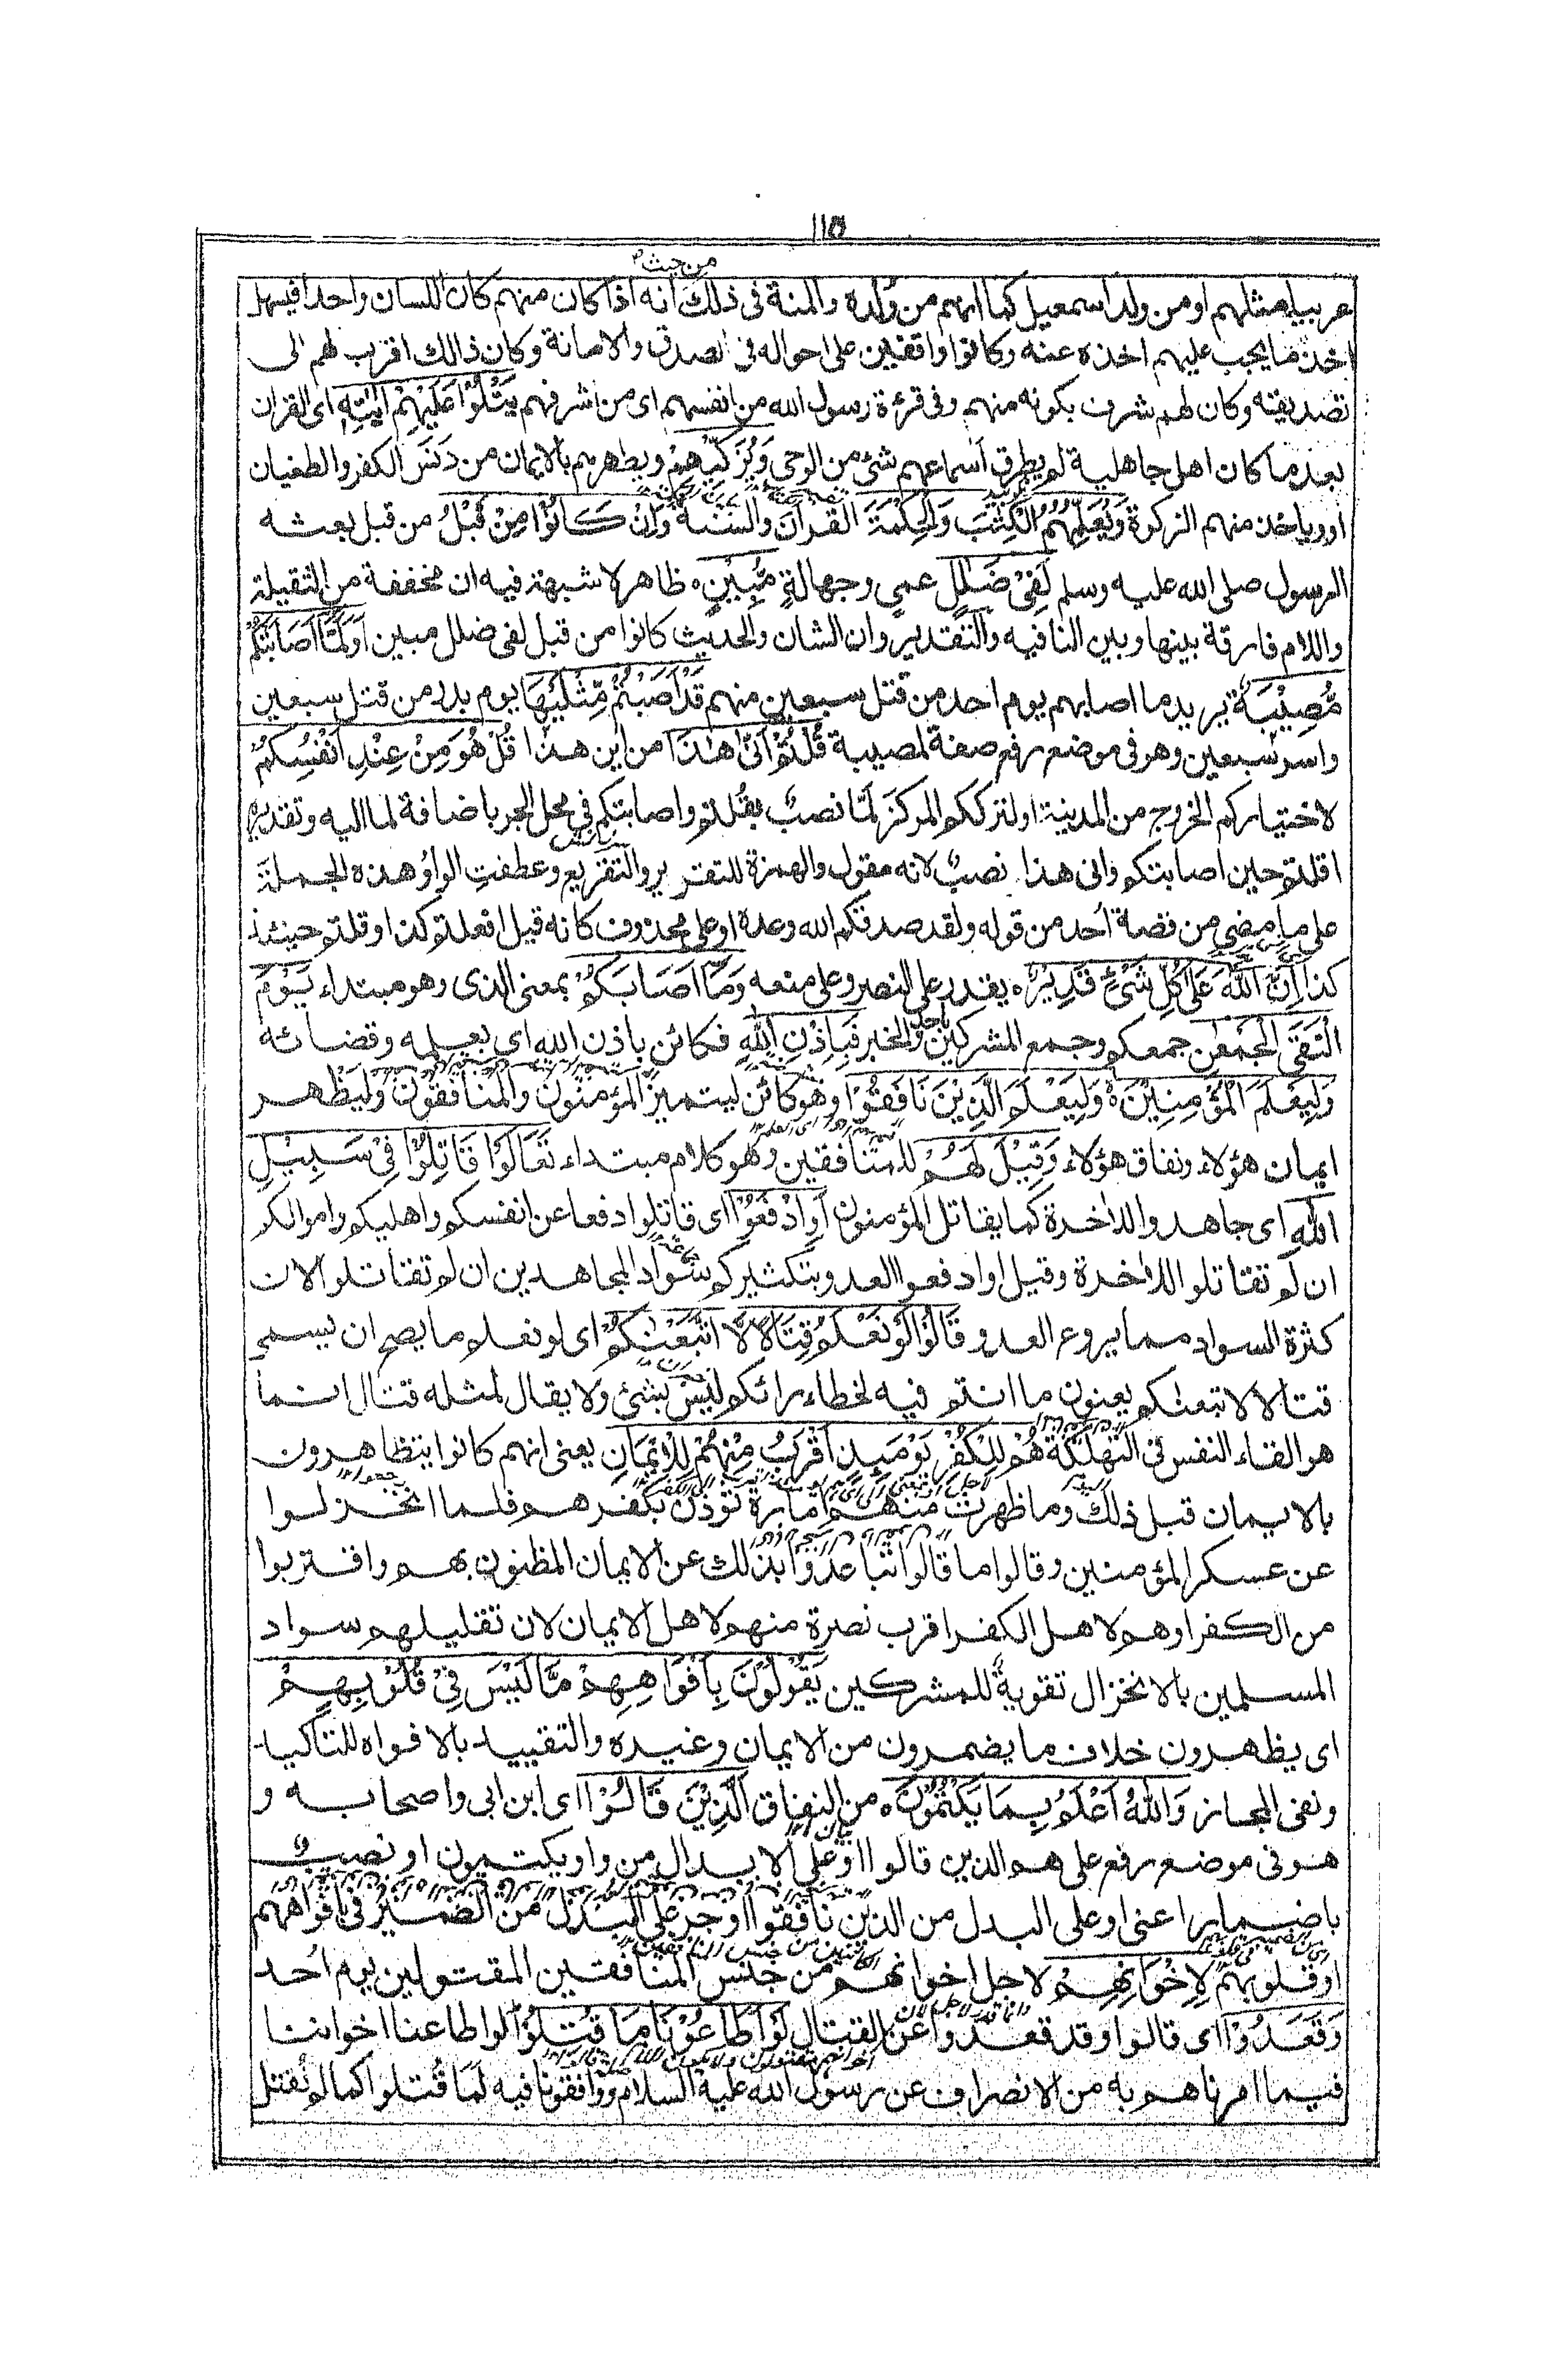 ١١٥
من حيث
عربيا مثلهم او من ولد اسمعيل كما انهم من وُلده والمنة فى ذلك انه اذا كان منهم كان اللسان واحدا فيسهل
اخذ ما يجب عليهم اخذه عنه وكانوا واقفين على احواله فى الصدق والامانة وكان ذالك اقرب لهم الى
تصديقه وكان لهم شرف بكونه منهم وفى قرءة رسول الله من انفسهم اى من اشرفهم يَتْلُوْا عَلَيْهِمْ اٰيٰتِهٖ اى القران
بعد ما كان اهل جاهلية لم يطرق اسماعهم شئ من الوحى وَيُزَكِّيْهِمْ ويطهرهم بالايمان من دَنَس الكفر والطغيان
او وياخذ منهم الزكوة وَيُعَلِّمُهُمُ الْكِتٰبَ وَالْحِكْمَةَ القران والسنة وَاِنْ كَانُوْا مِنْ قَبْلُ من قبل بعثه
الرسول صلى الله عليه وسلم لَفِىْ ضَلٰلٍ عمى وجهالةٍ مُّبِيْنٍ ه ظاهر لا شبهة فيه ان مخففة من الثقيلة
واللام فارقة بينها وبين النافيه والتقدير وان الشان والحديث كانوا من قبل لفى ضلل مبين اَوَلَمَّا اَصَابَتْكُمْ
مُّصِيْبَةٌ يريد ما اصابهم يوم احد من قتل سبعين منهم قَدْ اَصَبْتُمْ مِّثْلَيْهَا يوم بدر من قتل سبعين
واسر سبعين وهو فى موضع رفع صفة لمصيبة قُلْتُمْ اَنّٰى هٰذَا من اين هذا قُلْ هُوَ مِنْ عِنْدِ اَنْفُسِكُمْ
لاختياركم الخروج من المدينة او لترككم المركز لَمّا نصبٌ بقُلتم واصابتكم فى محل الجر باضافة لما اليه وتقديره
اقلتم حين اصابتكم وانى هذا نصبٌ لانه مقول والهمزة للتقرير والتقريع وعطفتِ الواوُ هذه الجملة
على ما مضى من قصة اُحد من قوله ولقد صدقكم الله وعده او على محذوف كانه قيل افعلتم كذا وقلتم حينئذ
كذا اِنَّ اللّٰهَ عَلٰى كُلِّ شَىْءٍ قَدِيْرٌ ه يقدر على النصر وعلى منعه وَمَا اَصَابَكُمْ بمعنى الذى وهو مبتداء يَوْمَ
الْتَقَى الْجَمْعٰنِ جمعكم وجمع المشركين باحد والخبر فَبِاِذْنِ اللّٰهِ فكائن باذن الله اى بعلمه وقضائه
وَلِيَعْلَمَ الْمُؤْمِنِيْنَ ه وَلِيَعْلَمَ الَّذِيْنَ نَافَقُوْا وهو كائن ليتميز المؤمنون والمنافقون وليظهر
ايمان هؤلاء ونفاق هؤلاء وَقِيْلَ لَهُمْ للمنافقين وهو كلام مبتداء تَعَالَوْا قَاتِلُوْا فِىْ سَبِيْلِ
اللّٰهِ اى جاهدوا للاخرة كما يقاتل المؤمنون اَوِ ادْفَعُوْا اى قاتلوا دفعا عن انفسكم واهليكم واموالكم
ان لم تقاتلو اللاخرة وقيل او ادفعوا العدو بتكثيركم سواد المجاهدين ان لم تقاتلو الان
كثرة السواد مما يروع العدو قَالُوْا لَوْ نَعْلَمُ قِتَالًا لَّا اتَّبَعْنٰكُمْ اى لو نعلم ما يصح ان يسمى
قتالا لاتبعنٰكم يعنون ما انتم فيه لخطاء رائكم ليس بشئ ولا يقال لمثله قتال انما
هو القاء النفس فى التهلكة هُمْ لِلْكُفْرِ يَوْمَئِذٍ اَقْرَبُ مِنْهُمْ لِلْاِيْمَانِ يعنى انهم كانوا يتظاهرون
بالايمان قبل ذلك وما ظهرت منهم امارة تؤذن بكفرهم فلما انخزلوا
عن عسكر المؤمنين وقالوا ما قالوا تباعدوا بذلك عن الايمان المظنون بهم واقتربوا
من الكفر او هم لاهل الكفر اقرب نصرة منهم لاهل الايمان لان تقليلهم سواد
المسلمين بالانخزال تقويةٌ للمشركين يَقُوْلُوْنَ بِاَفْوَاهِهِمْ مَّا لَيْسَ فِىْ قُلُوْبِهِمْ
اى يظهرون خلاف ما يضمرون من الايمان وغيره والتقييد بالافواه للتاكيد
ونفى المجاز وَاللّٰهُ اَعْلَمُ بِمَا يَكْتُمُوْنَ ه من النفاق اَلَّذِيْنَ قَالُوْا اى ابن ابى واصحابه و
هو فى موضع رفع على هم الذين قالوا او على الابدال من واو يكتمون او نصبٌ
باضمار اعنى او على البدل من الذين نافقوا او جر على البدل من الضمير فى بافواههم
او قلوبهم لِاِخْوَانِهِمْ لاجل اخوانهم من جنس المنافقين المقتولين يوم اُحد
وَقَعَدُوْا اى قالوا وقد قعدوا عن القتال لَوْ اَطَاعُوْنَا مَا قُتِلُوْا لو اطاعنا اخواننا
فيما امرناهم به من الانصراف عن رسول الله عليه السلام ووافقونا فيه لَمَا قُتلوا كما لم نُقتل